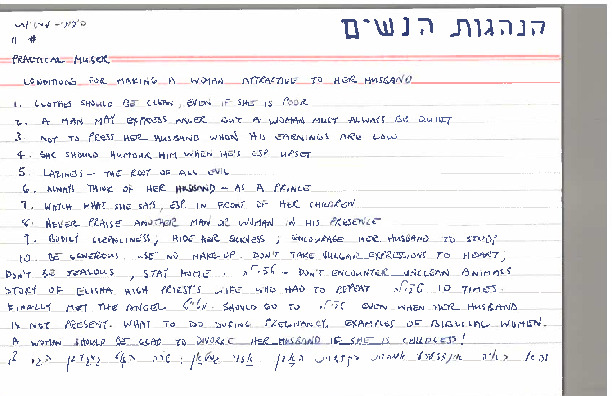 הנהגות הנשים
11 #
PRACTICAL MUSER
CONDITIONS FOR MAKING A WOMAN ATTRACTIVE TO HER HUSBAND
1. CLOTHES SHOULD BE CLEAN, EVEN IF SHE IS POOR
2. A MAN MAY EXPRESS ANGER BUT A WOMAN MUST ALWAYS BE QUIET
3. NOT TO PRESS HER HUSBAND WHEN HIS EARNINGS ARE LOW
4. SHE SHOULD HUMOUR HIM WHEN HE'S ESP UPSET
5. LAZINESS - THE ROOT OF ALL EVIL
6. ALWAYS THINK OF HER HUSBAND - AS A PRINCE
7. WATCH WHAT SHE SAYS, ESP IN FRONT OF HER CHILDREN
8. NEVER PRAISE ANOTHER MAN OR WOMAN IN HIS PRESENCE
9. BODILY CLEANLINESS; HIDE HER SICKNESS; ENCOURAGE HER HUSBAND TO STUDY
10. BE GENEROUS. USE NO MAKE-UP. DON'T TAKE VULGAR EXPRESSIONS TO HEART,
DON'T BE JEALOUS, STAY HOME. טבילה - DON'T ENCOUNTER UNCLEAN ANIMALS
STORY OF ELISHA HIGH PRIEST'S WIFE WHO HAD TO REPEAT טבילה 10 TIMES.
FINALLY MET THE ANGEL SHOULD GO TO טבילה EVEN WHEN HER HUSBAND
IS NOT PRESENT. WHAT TO DO DURING PREGNANCY. EXAMPLES OF BIBLICAL WOMEN.
A WOMAN SHOULD BE GLAD TO DIVORCE HER HUSBAND IF SHE IS CHILDLESS!